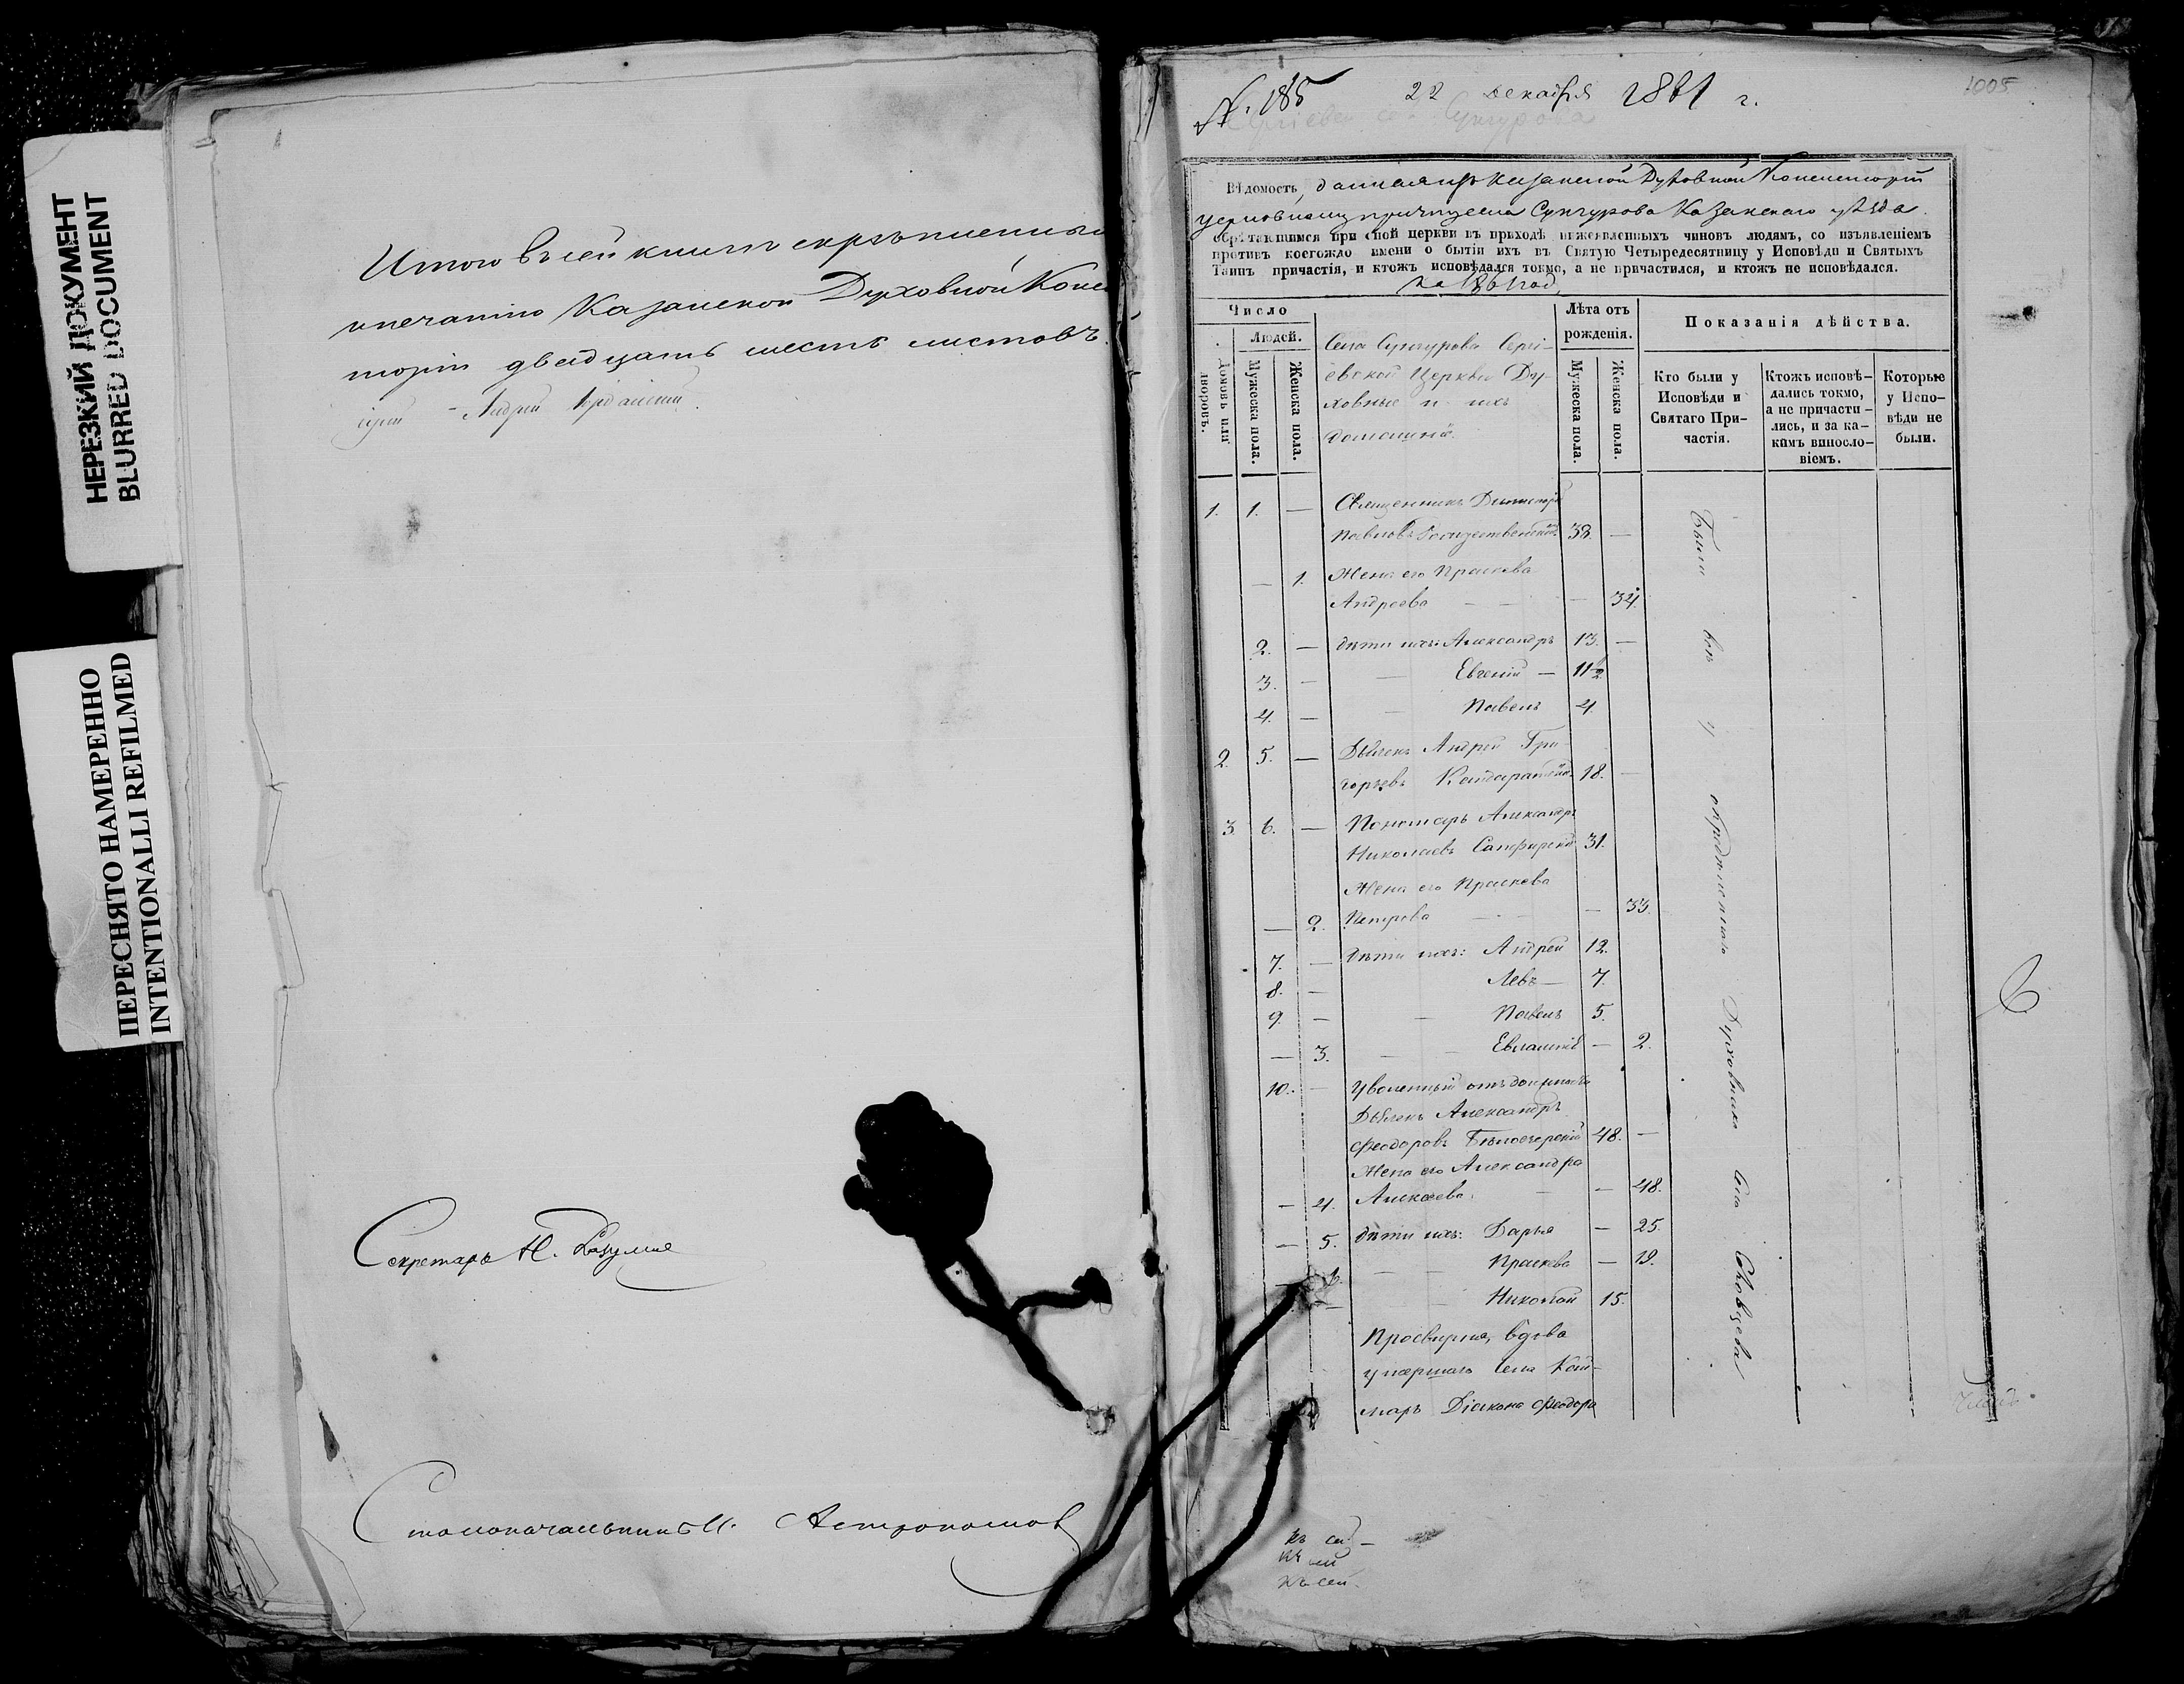 НЕРЕЗКИЙ ДОКУМЕНТ
BLURRED DOCUMENT
ПЕРЕСНЯТО НАМЕРЕННО
INTENTIONALLI REFILMED
Итого въ сей книгѣ скрѣпленных
и печатью Казанской Духовной Конси
торіи двадцать шесть листовъ.
Андрей
Секретарь Н. Разумов
Столоначальникъ И. Астрономов
№. 185 22 декабря 1861 г.
1005
Сунгурова
Вѣдомость, данная изъ Казанской Духовной Консисторіи
церковному причту села Сунгурова Казанскаго уѣзда
обрѣтающимся при оной церкви въ приходѣ нижеявленныхъ чиновъ людямъ, со изъявленіемъ
противъ коегождо имени о бытіи ихъ въ Святую Четыредесятницу у Исповѣди и Святыхъ
Таинъ причастія, и ктожъ исповѣдался токмо, а не причастился, и ктожъ не исповѣдался.
на 1861 год.
Число
Людей.
Домовъ или дворовъ.
Мужеска пола.
Женска пола.
Села Сунгурова Сергі-
евской Церкви Ду-
ховные и ихъ
домашніе.
Лѣта отъ
рожденія.
Мужеска пола.
Женска пола.
Показанія дѣйства.
Кто были у
Исповѣди и
Святаго При-
частія.
Ктожъ исповѣ-
дались токмо,
а не причасти-
лись, и за ка-
кимъ винословіемъ.
Которые
у Испо-
вѣди не
были.
1. 1. — Священникъ Димитрій
Павловъ Рождественскій 38. —
— 1. Жена его Праскева
Андреева — — — 34.
2. — дѣти ихъ: Александръ 13. —
3. — — Евгеній — 11½
4. — — Павелъ 4.
2. 5. — Дьячекъ Андрей Гри-
горьевъ 18. —
3. 6. — Пономарь Александръ
Николаевъ Сапфирскій 31.
Жена его Праскева
— 2. Петрова — — — 33.
7. — дѣти ихъ: Андрей 12.
8. — Левъ — 7.
9. — — Павелъ 5.
— 3. — — Евлампія — 2.
10. — Уволенный отъ должности
Дьячекъ Александръ
Феодоровъ Бѣлоозерскій 48. —
Жена его Александра
— 4. Алексѣева. — — 48.
— 5. дѣти ихъ: Дарья — 25.
— 6. — — Праскева — 19.
— — Николай 15.
Просвирня, вдова
умершаго села
Діакона Феодора
Были всѣ у опредѣленнаго Духовника села
6
къ сей —
къ сей
къ сей.